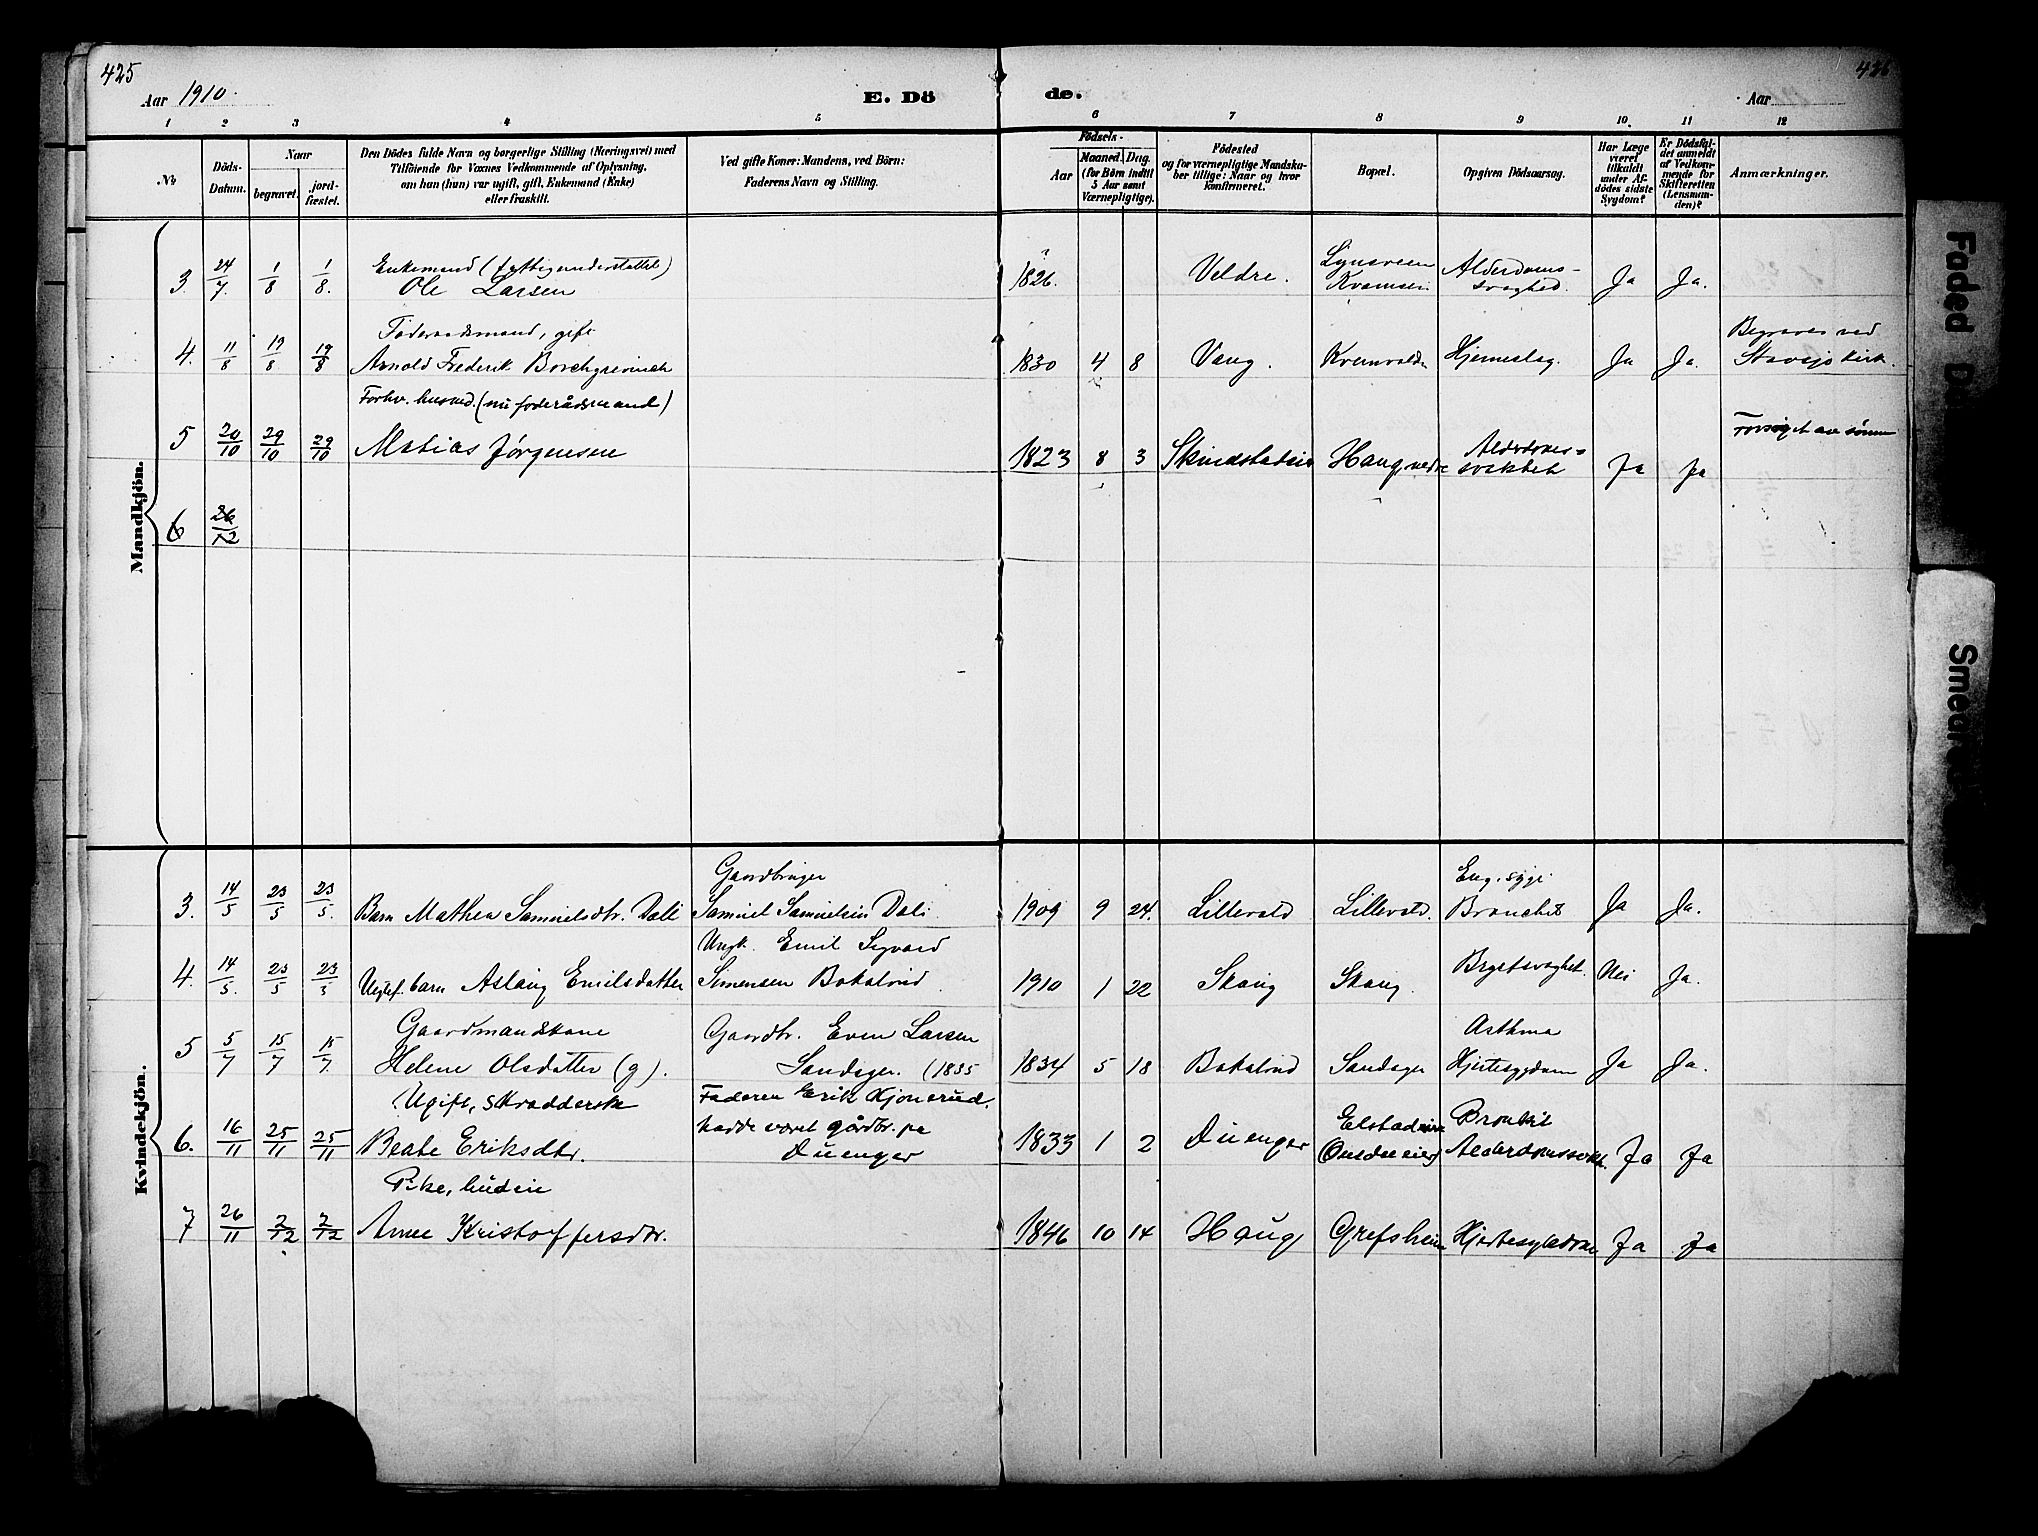 425
426
Aar 1910.
E. Dö
de.
Aar
1 2 3 4 5 6 7 8 9 10. 11 12
No
Döds-
Datum.
Naar
begravet.
jord-
fæstet.
Den Dödes fulde Navn og borgerlige Stilling (Næringsvei) med
Tilföiende for Voxnes Vedkommende af Oplysning,
om han (hun) var ugift, gift, Enkemand (Enke)
eller fraskilt.
Ved gifte Koner: Mandens, ved Börn:
Faderens Navn og Stilling.
Födsels-
Aar
Maaned. Dag.
(for Börn indtil
5 Aar samt
Værnepligtige).
Födested
og for værnepligtige Mandska-
ber tillige: Naar og hvor
konfirmeret.
Bopæl.
Opgiven Dödsaarsag.
Har Læge
været
tilkaldt
under Af-
dödes sidste
Sygdom?
Er Dödsfal-
det anmeldt
af Vedkom-
mende for
Skifteretten
(Lensman-
den)?
Anmærkninger.
Mandkjön.
Enkemand (fattigunderstøttet)
3. 24/7. 1/8 1/8. Ole Larsen 1826. Veldre. Alderdoms-
svaghed. Ja Ja.
Föderaadsmand, gift
4. 11/8 19/8 19/8 Arnold Frederik Borchgrevinck 1830 4 8 Vang. Hjerneslag. Ja Ja.
Begraves ved
Forhv. husmd. (nu foderådsmand)
5 20/10 29/10 29/10 Matias Jørgensen 1823 8 3 Haug nedre Alderdoms-
svakhet Ja Ja
6 26/12
Kvindekjön.
Gaardbruger
3. 14/5 23/5 23/5. Barn Mathea Samuelsdtr. Dæli Samuel Samuelsen Dæli. 1909 9 24. Lillevold Lillevold. Eng. syge.
Bronchit Ja Ja.
Ungk. Emil Sigvard
4. 14/5. 23/5 23/5 Uegtef. barn Aslaug Emilsdatter Simensen Bakalrud. 1910 1 22 Skaug Skaug. Brystsvaghet. Nei Ja.
Gaardmandskone Gaardbr. Even Larsen
5 5/7 15/7 15/7. Helene Olsdatter (g). Sandager. (1835 1834 5 18 Bakalrud Sandager Asthma
Hjertesygdom Ja Ja.
Ugift, skrædderske Faderen Erik Kjonerud.
hadde været gårdbr. på
6. 16/11 25/11 25/11 Beate Eriksdtr. Duenger 1833 1 2 Duenger Bronkit
Alderdomssvakh. Ja Ja
Pike, budeie
7 26/11 2/12 2/12 Anne Kristoffersdtr. 1846 10 14 Haug Grefsheim Hjertesykdom Ja Ja
Faded